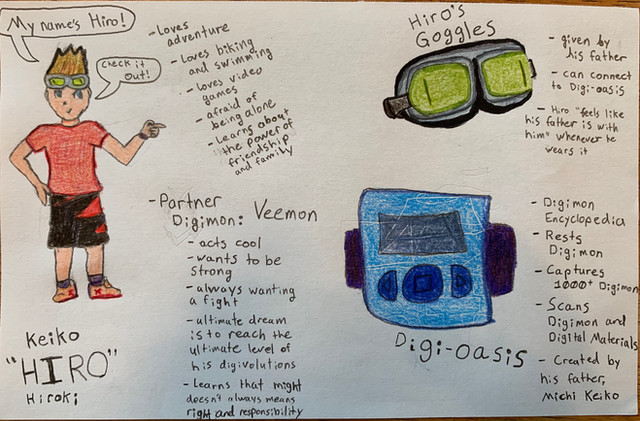 My name's Hiro!
Check it
out!
-Loves
adventure
-Loves biking
and swimming
-loves video
games
-afraid of
being alone
-Learns about
the power of
friendship
and family
Hiro's
Goggles
- given by
his father
- can connect
to Digi-oasis
- Hiro "feels like
his father is with
him" whenever he
wears it
-Partner
Digimon: Veemon
- acts cool
- wants to be
strong
- always wanting
a fight
- ultimate dream
is to reach the
ultimate level of
his digivolutions
- Learns that might
doesn't always means
right and responsibility
Keiko
"HIRO"
Hiroki
Digi-oasis
- Digimon
Encyclopedia
- Rests
Digimon
- Captures
1000+ Digimon
- Scans
Digimon and
Digital Materials
- Created by
his father,
Michi Keiko